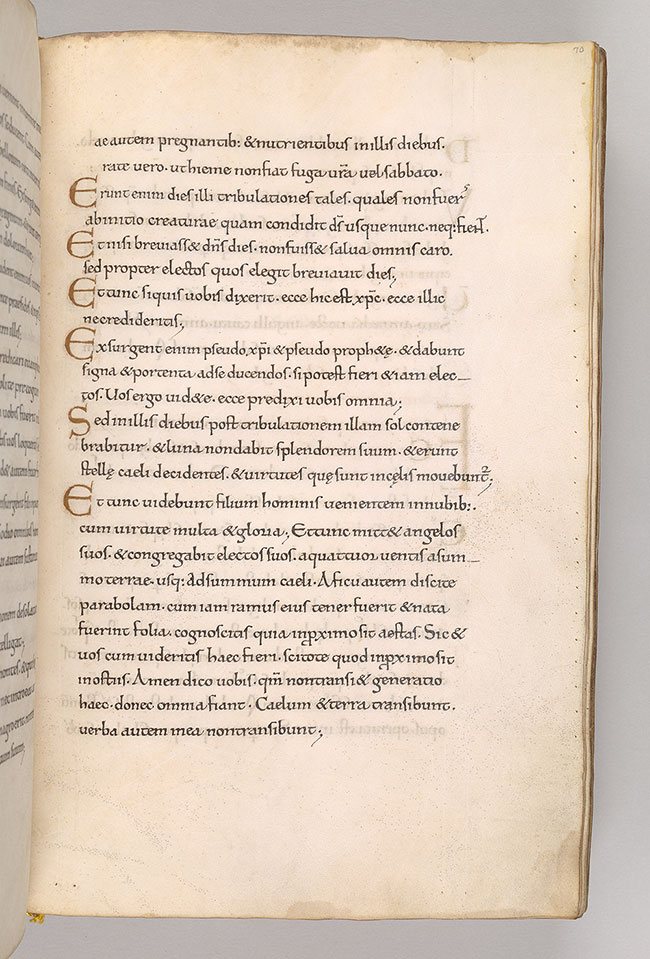 70
ae autem pregnantib: & nutrientibus in illis diebus.
rate vero. ut hieme non fiat fuga ur̅a uel sabbato.
Erunt enim dies illi tribulationes tales. quales non fuer̅
ab initio creaturae quam condidit d̅s usque nunc. neq: fient.
Et nisi breviass& dn̅s dies. non fuiss& salua omnis caro.
sed propter electos quos elegit breviavit dies;
Et tunc si quis uobis dixerit. ecce hic est xp̅c. ecce illic
ne credideritis;
Exsurgent enim pseudo xp̅i & pseudo proph&ę. & dabunt
signa & portenta ad seducendos. si potest fieri & iam elec_
tos. Uos ergo uid&e. ecce predixi uobis omnia;
Sed in illis diebus post tribulationem illam sol contene
brabitur. & luna non dabit splendorem suum. & erunt
stellę caeli decidentes. & uirtutes quę sunt in cęlis movebunt̅;
Et tunc videbunt filium hominis uenientem in nubib:.
cum uirtute multa & gloria; Et tunc mitt& angelos
suos. & congregabit electos suos. a quattuor uentis a sum_
mo terrae. usq: ad summum caeli. A ficu autem discite
parabolam. cum iam ramus eius tener fuerit & nata
fuerint folia. cognoscitis quia in p̱ximo sit aestas. Sic &
uos cum uideritis haec fieri. scitote quod in p̱ximo sit
in ostiis. Amen dico uobis. qm̅ non transi& generatio
haec. donec omnia fiant. Caelum & terra transibunt.
verba autem mea non transibunt;